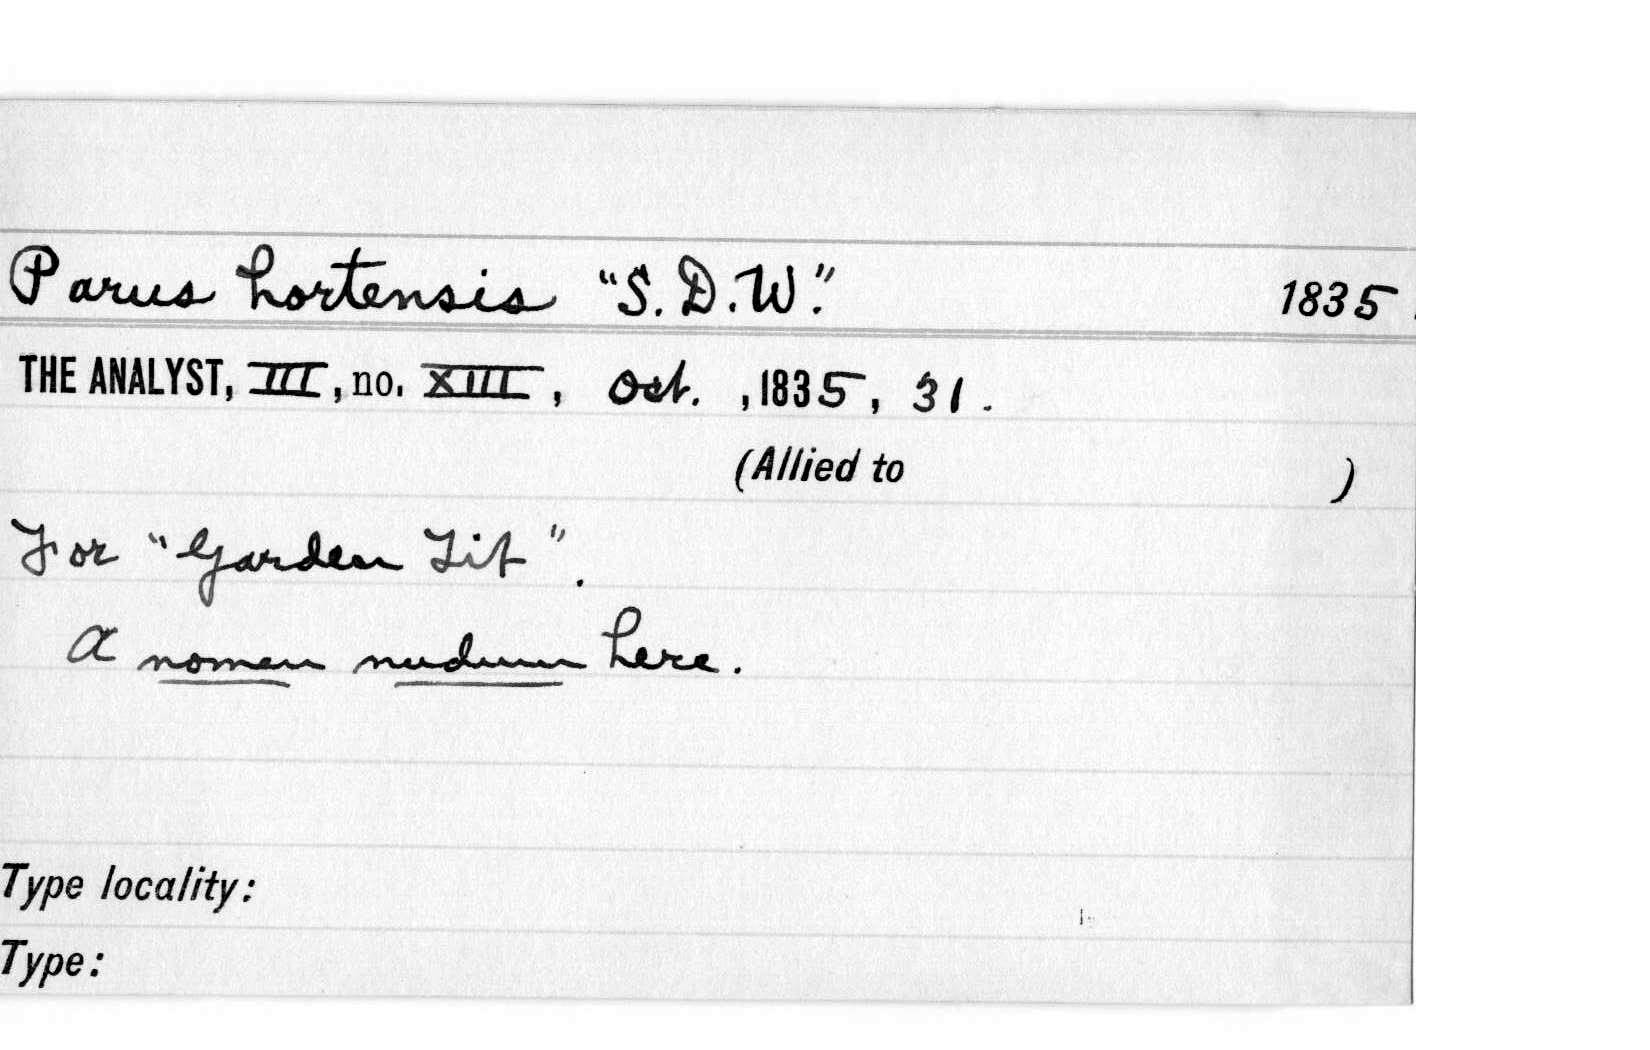 Parus hortensis "S.D.W." 1835.
THE ANALYST, III, no. XIII, Oct. , 1835, 31.
(Allied to )
For "Garden Tit".
A nomen nudum here.
Type locality:
Type: